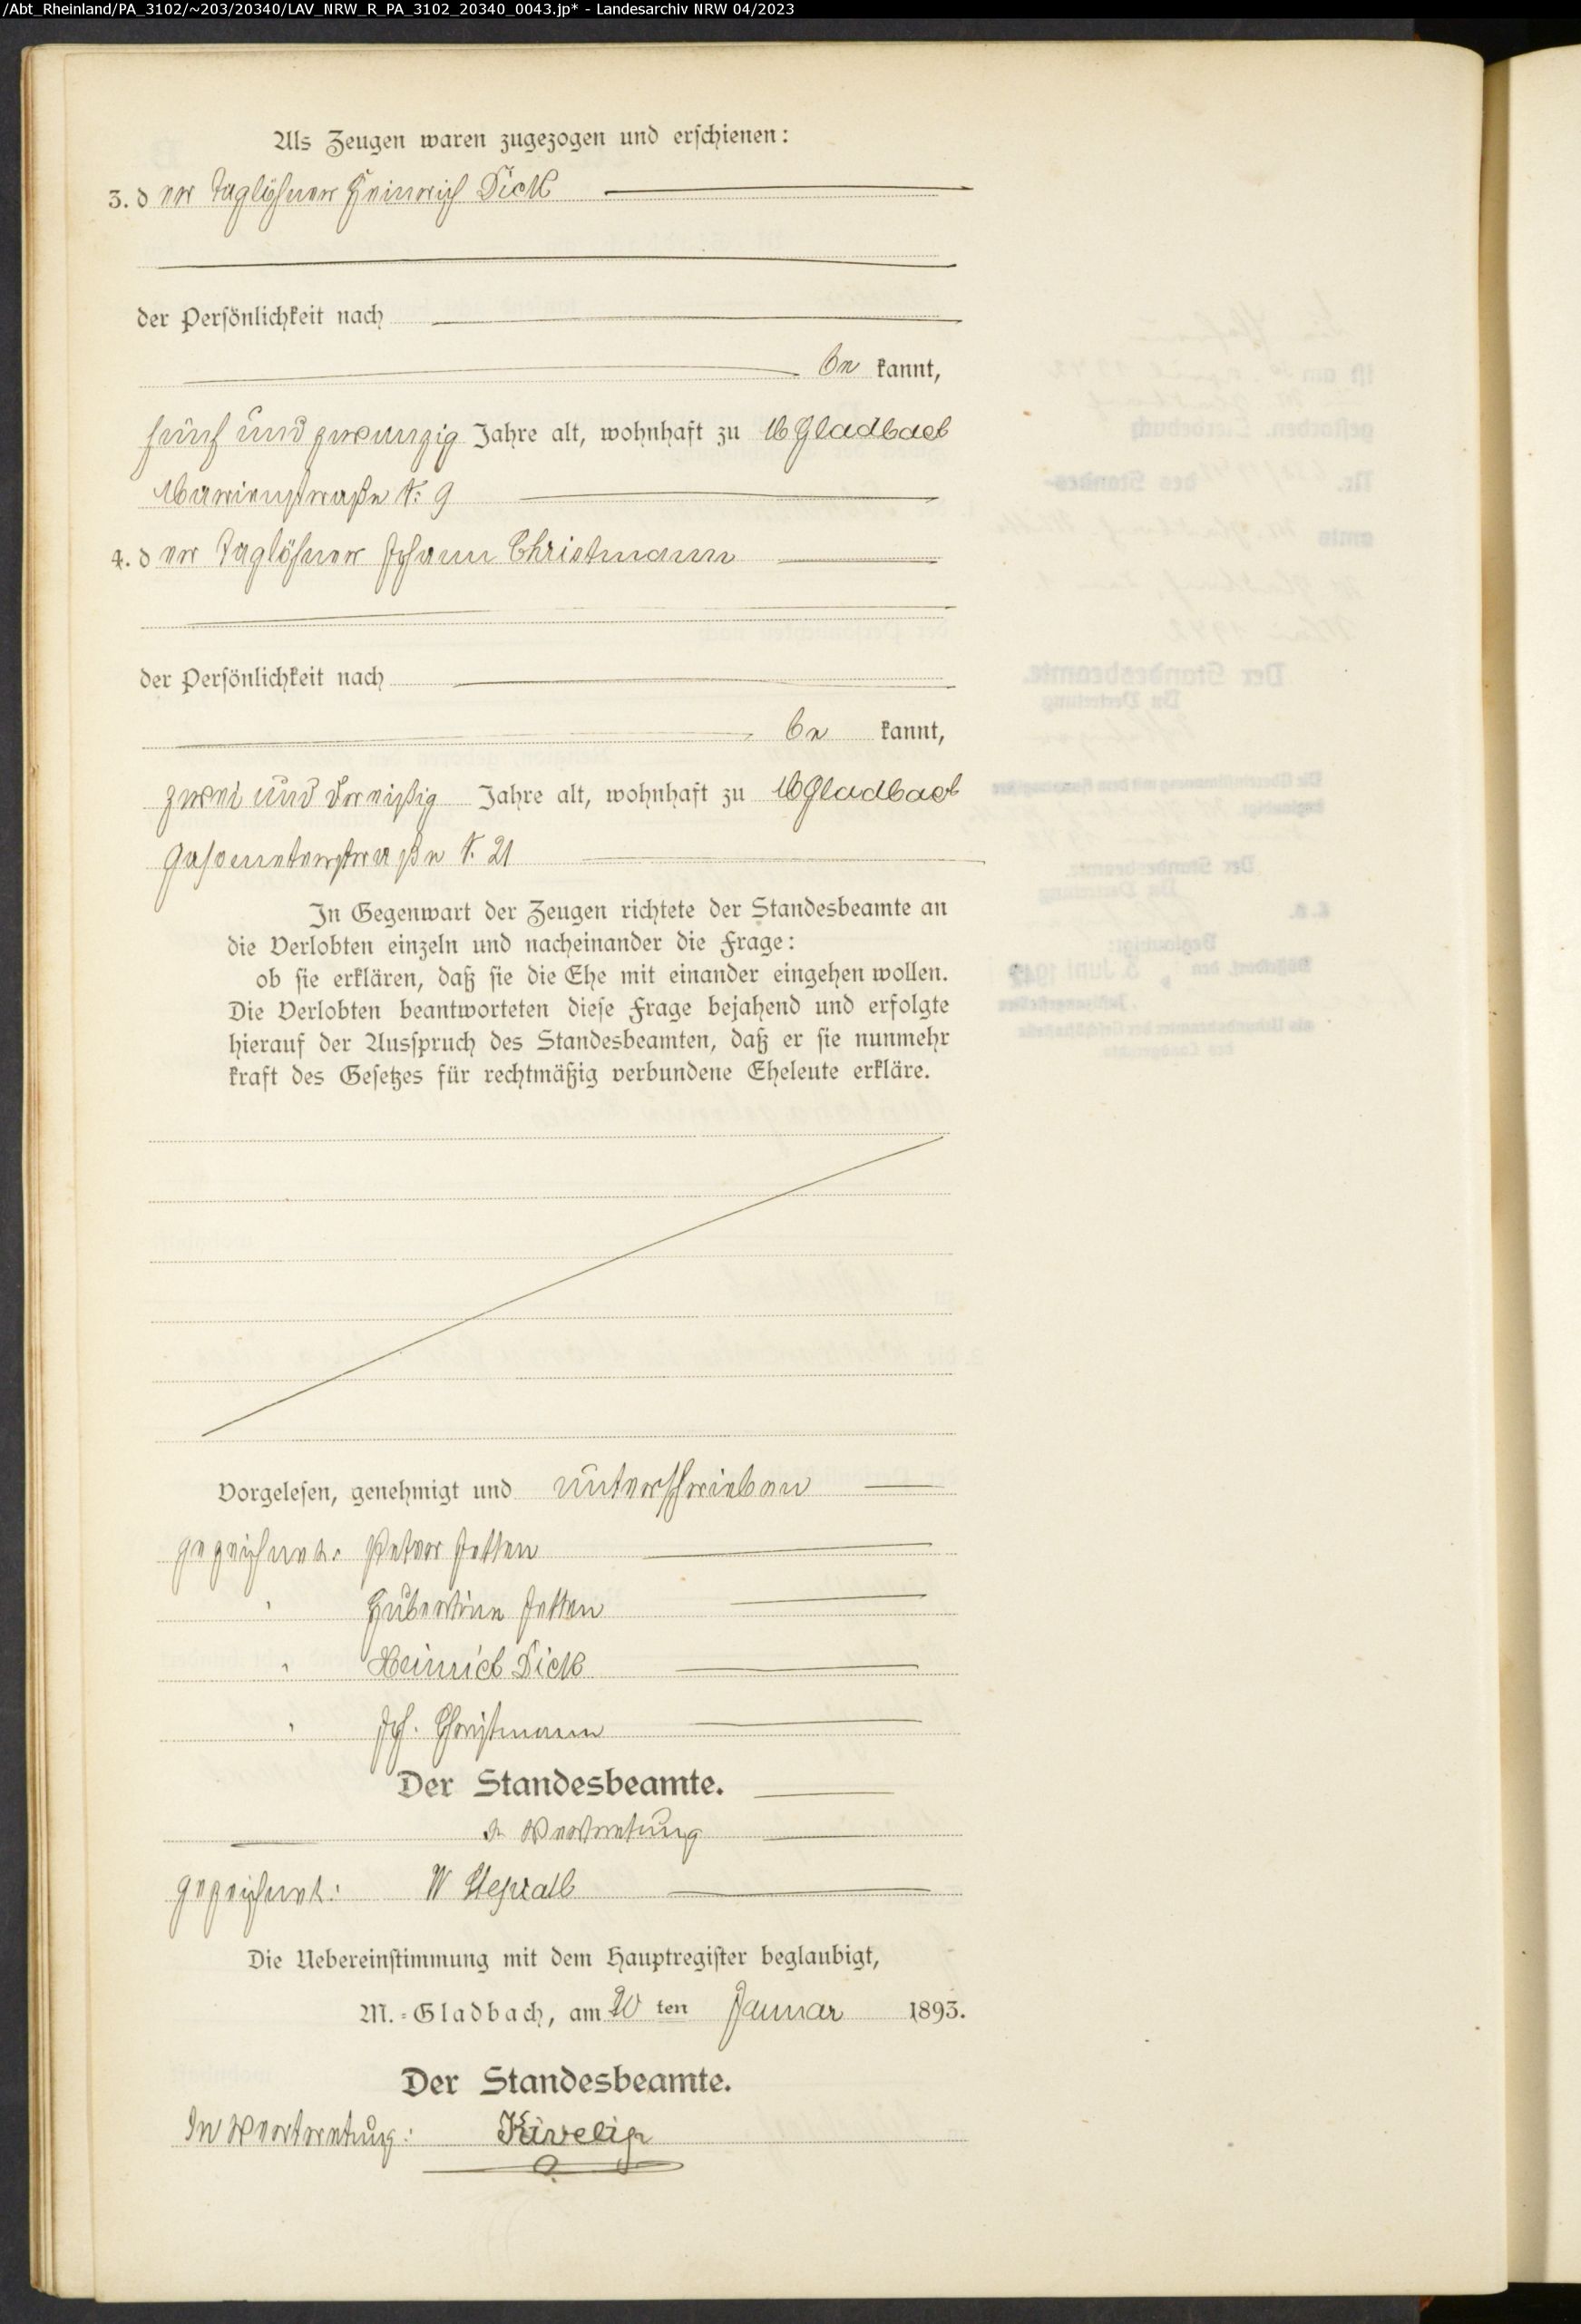 /Abt_Rheinland/PA_3102/~203/20340/LAV_NRW_R_PA_3102_20340_0043.jp* - Landesarchiv NRW 04/2023
Als Zeugen waren zugezogen und erschienen:
3. der Taglöhner Heinrich Dick
der Persönlichkeit nach
be kannt,
fünf und zwanzig Jahre alt, wohnhaft zu M Gladbach
Marienstraße N: 9
4. der Taglöhner Johann Christmann
der Persönlichkeit nach
be kannt,
zwei und dreißig Jahre alt, wohnhaft zu M Gladbach
Gasometerstraße N. 21
In Gegenwart der Zeugen richtete der Standesbeamte an
die Verlobten einzeln und nacheinander die Frage:
ob sie erklären, daß sie die Ehe mit einander eingehen wollen.
Die Verlobten beantworteten diese Frage bejahend und erfolgte
hierauf der Ausspruch des Standesbeamten, daß er sie nunmehr
kraft des Gesetzes für rechtmäßig verbundene Eheleute erkläre.
Vorgelesen, genehmigt und unterschrieben
gezeichnet: Peter Jetten
" Hubertine Jetten
" Heinrich Dick
" Joh. Christmann
Der Standesbeamte.
In Vertretung
gezeichnet: W
Die Uebereinstimmung mit dem Hauptregister beglaubigt,
M.=Gladbach, am 20 ten Januar 1893.
Der Standesbeamte.
In Vertretung: